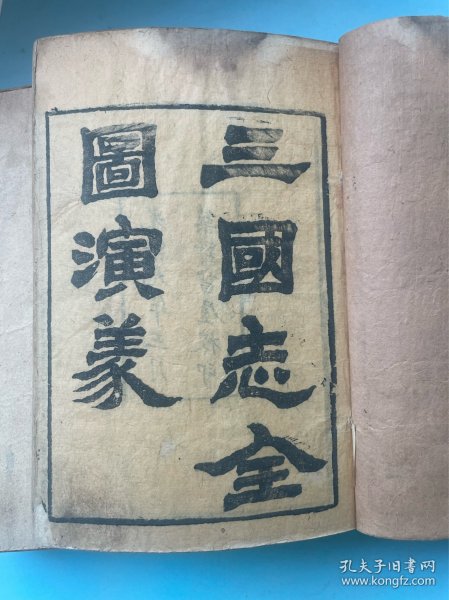 三國志全
圖演義
孔夫子旧书网
www.kongfz.com